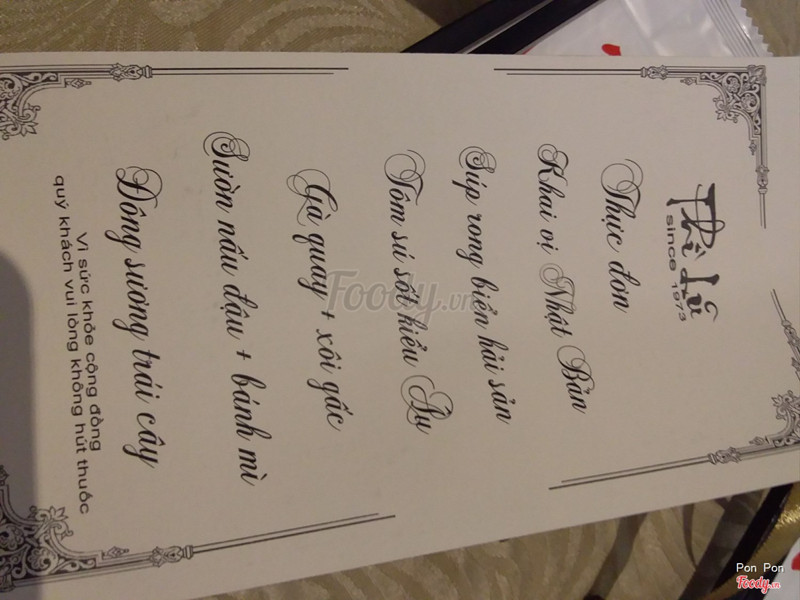 Phi Lũ
since 1973
Thực đơn
Khai vị Nhật Bản
Súp rong biển hải sản
Tôm sú sốt kiểu Âu
Gà quay + xôi gấc
Sườn nấu đậu + bánh mì
Đông sương trái cây
Vì sức khỏe cộng đồng
quý khách vui lòng không hút thuốc
Foody.vn
Pon Pon
Foody.vn